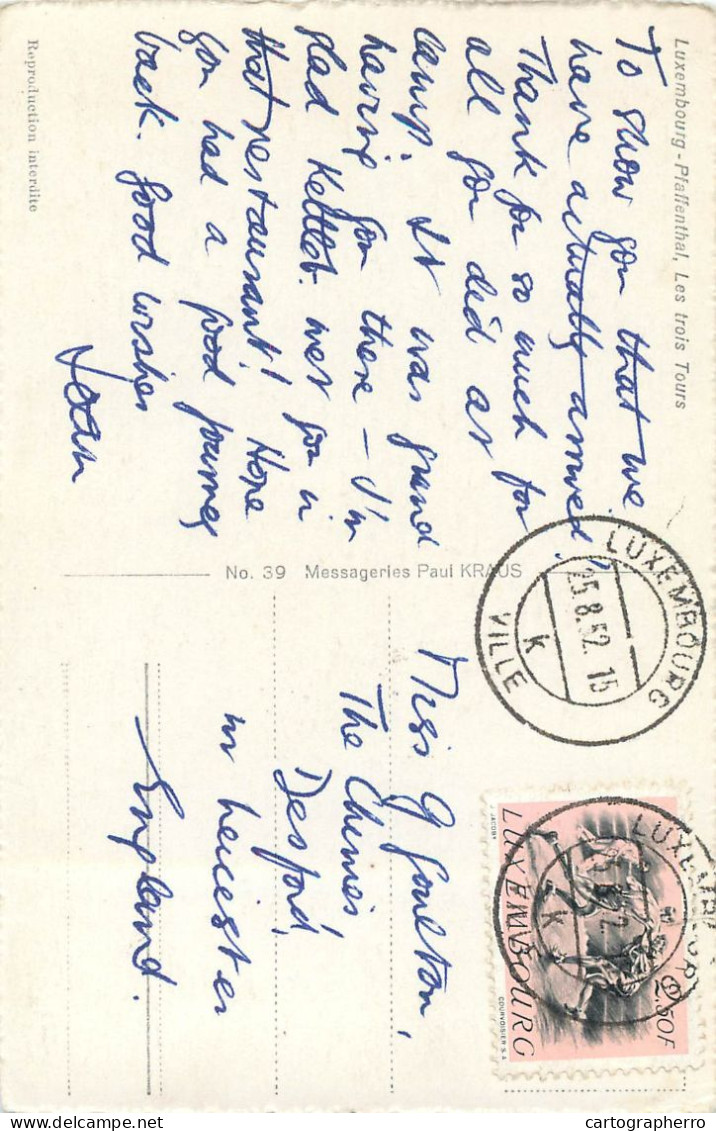 Luxembourg - Pfaffenthal, Les trois Tours
To show you that we
have actually arrived!
Thank for so much for
all you did at
camp. It was grand
having you there - I'm
glad Kettleb. met you in
that restaurant! Hope
you had a good journey
back. Good wishes
Joan
Reproduction interdite
No. 39 Messageries Paul KRAUS
LUXEMBOURG
25.8.52. 15
k
VILLE
Miss G Goulton,
'The Chimes',
Desford,
nr Leicester
England.
JACOBY
LUXEMBOURG
COURVOISIER S.A.
2.50F
LUXEMBOURG
K
cartographerro